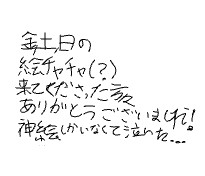 金土日の
絵チャチャ(?)
来てくださった方々
ありがとうございました!
神絵しかいなくて泣いた…